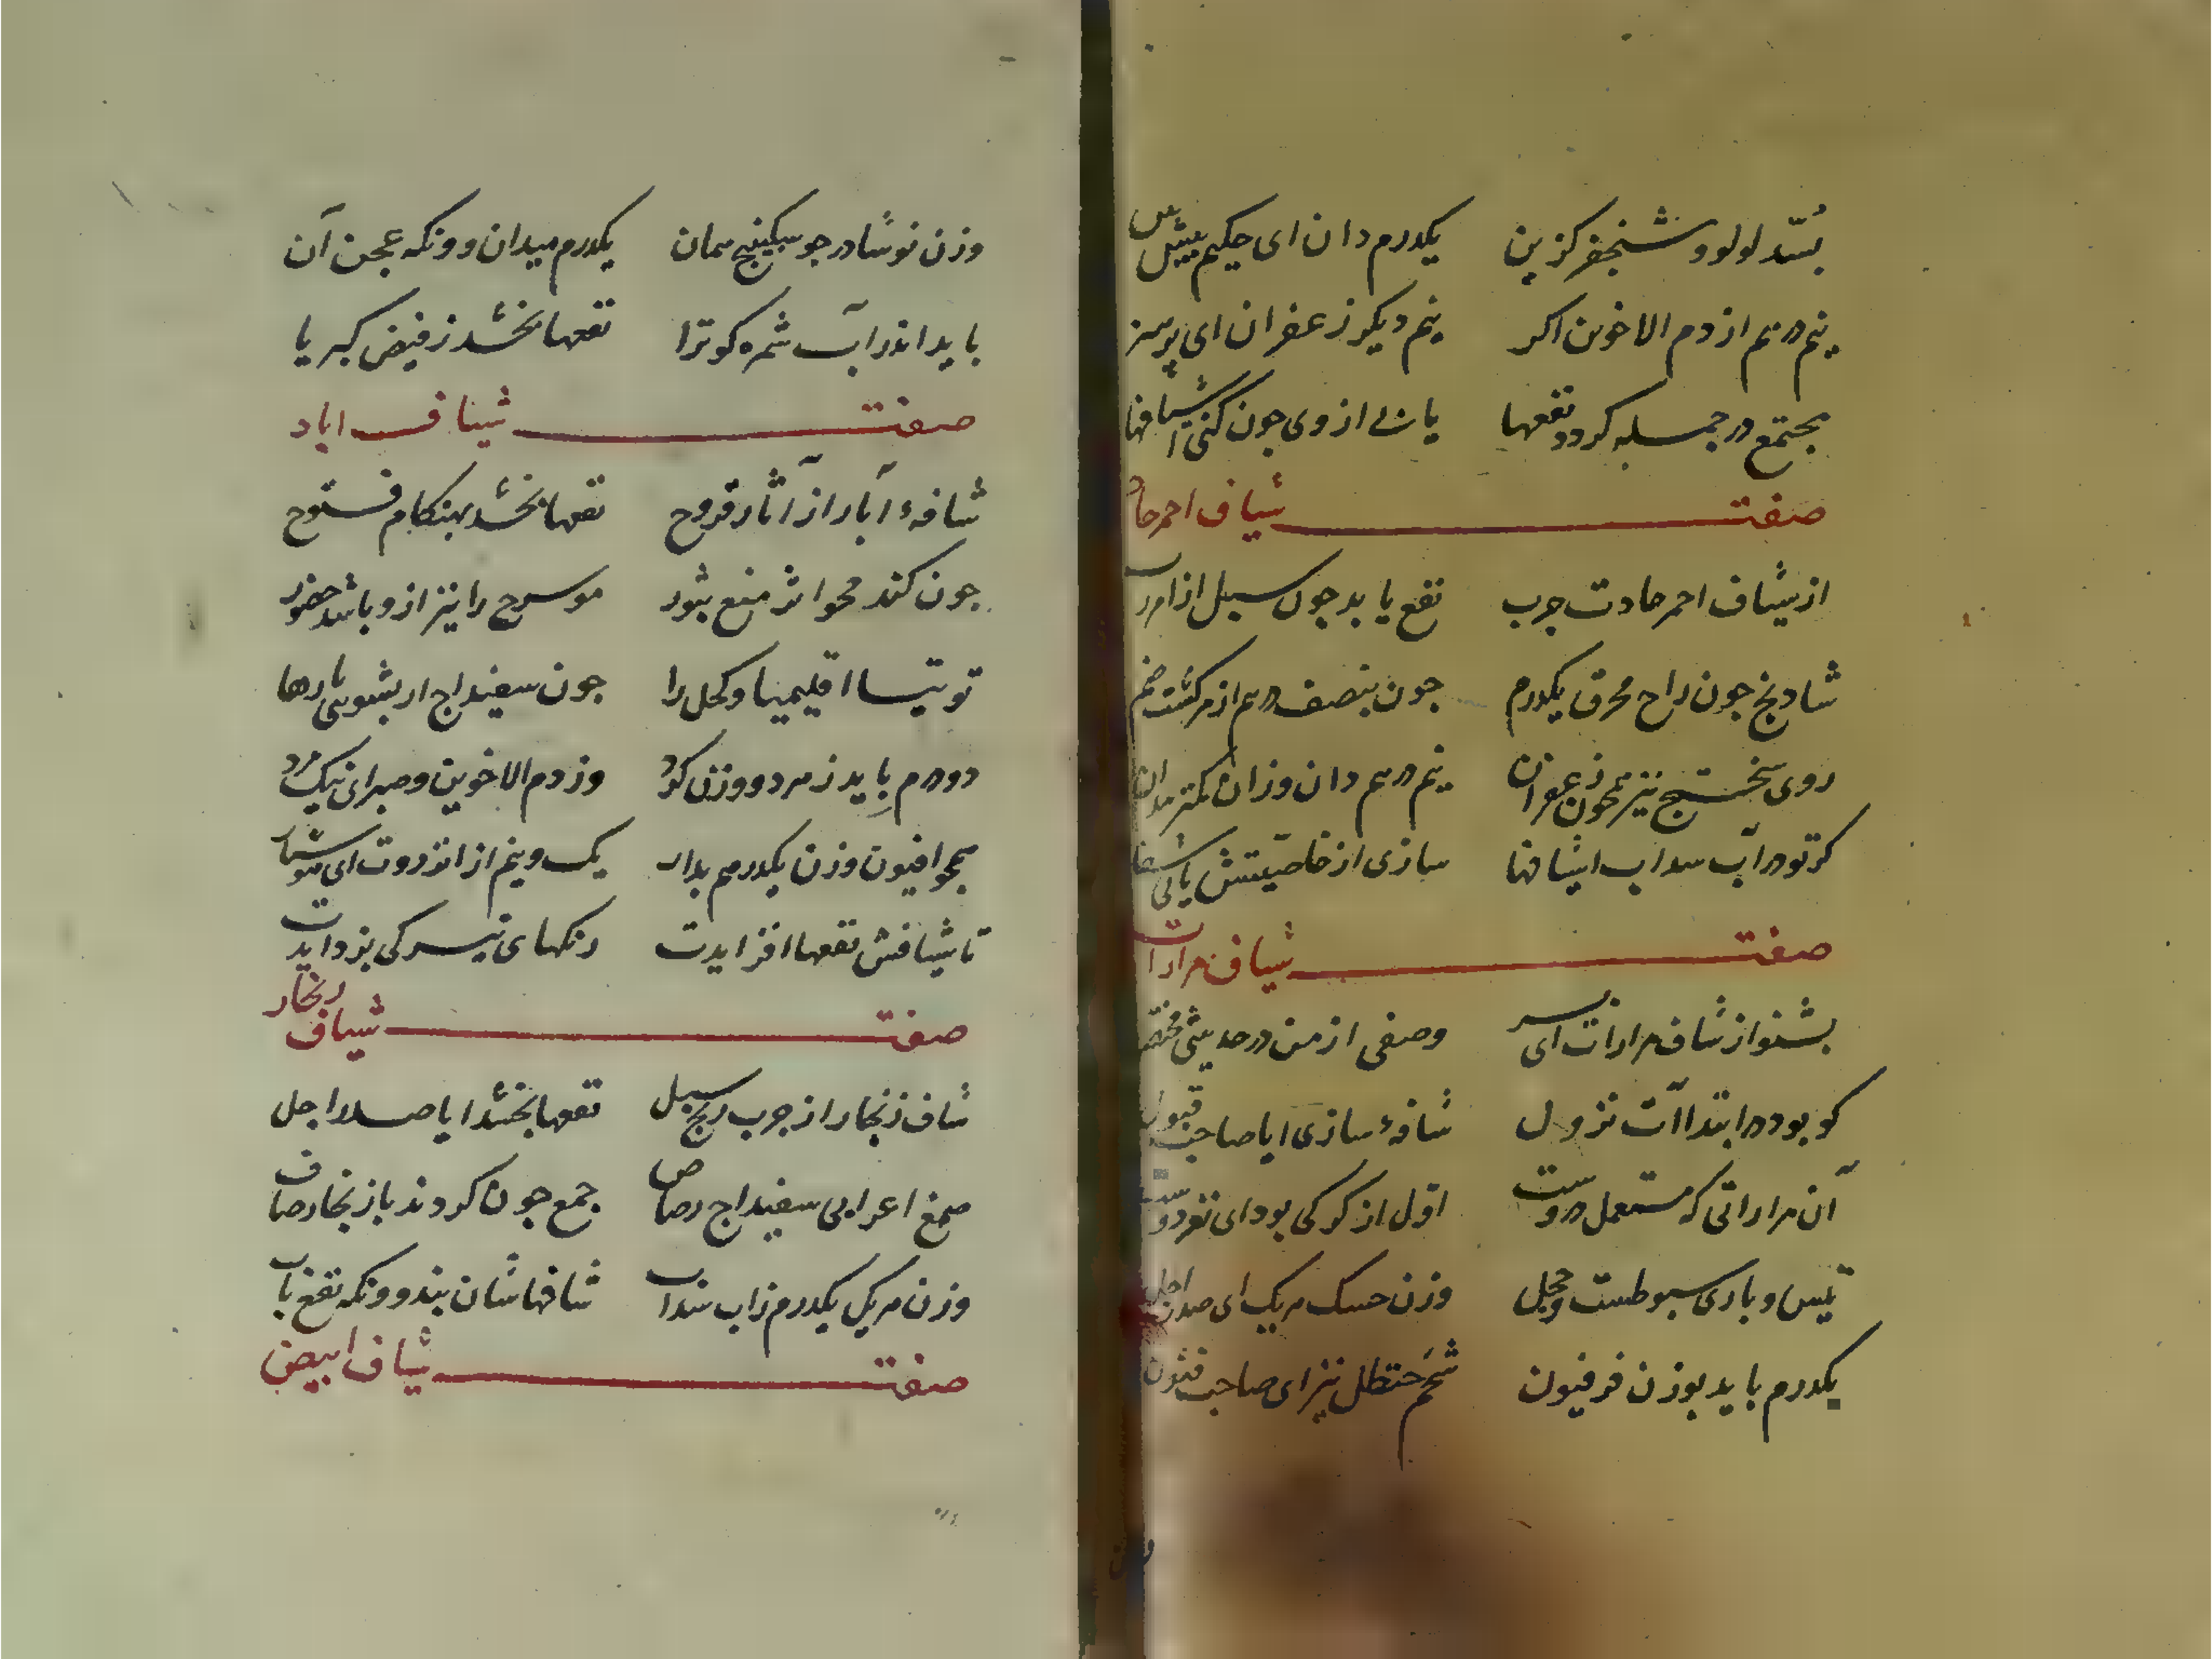 بسّد لولو و شنجفر کزین یکدرم دان ای حکیم پیش بین
نیم درهم از دم الاخوین اکر نیم دیکر زعفران ای پر هنر
مجتمع در جمله کردد نفعها یابی از وی جون کنی اشیافها
صفت شیاف احمر حاد
از شیاف احمر حادت جرب نفع یابد جون سبل از امر رب
شادنج جون راح محرق یکدرم جون بنصف درهم از مر کشت ضم
روی سختج نیز همجون زعفران نیم درهم دان وزان کمتر مدان
کر تو در آب سداب اشیافها سازی از خاصیتش یابی شفا
صفت شیاف مرارات
بشنو از شاف مرارات ای پسر وصفی از من در حدیثی مختصر
کو بود در ابتداآت نزول شافهٔ سازی ایا صاحب قبول
آن مراراتی که مستعمل دروست اوّل از کرکی بود ای نغز دوست
تیس و بازی سبوطست و حجل وزن حسک هر یک ای صدر اجل
یکدرم باید بوزن فرفیون شحم حنظل نیز ای صاحب فنون
وزن نوشادر جو سکبینج همان یکدرم میدان و ونکه عجن آن
باید اندر آب ثمره کو ترا نفعها بخشد ز فیض کبریا
صفت شیاف ابار
شافهٔ آبار از آثار قروح نفعها بخشد بهنکام فتوح
جون کند محو اثر منع بثور موسرج را نیز ازو باشد حضور
توتیا اقلیمیا و کحل را جون سفیداج ار بشویی بارها
دو درم باید ز هر دو وزن کرد وز دم الاخوین و صبر ای نیک مرد
همجو افیون وزن یکدرهم بدار یک و نیم از انزروت ای هوشیار
تا شیافش نفعها افزایدت رنکهای تیرکی بزدایدت
صفت شیاف زنجار
شاف زنجار از جرب رنج سبل نفعها بخشد ایا صدر اجل
صمغ اعرابی سفیداج رصاص جمع جون کردند با زنجار صاف
وزن هر یک یکدرم زاب سداب شافهاشان بند و ونکه نفع یاب
صفت شیاف ابیض